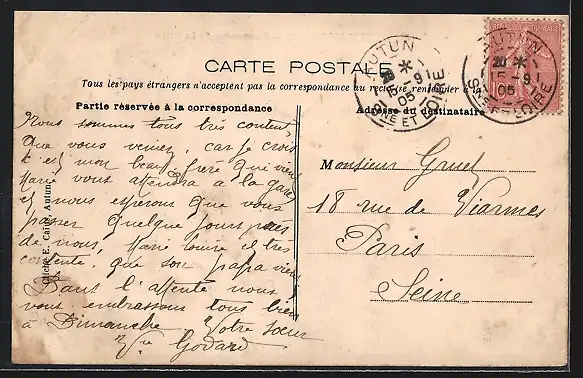 CARTE POSTALE
Tous les pays étrangers n'acceptent pas la correspondance au recto, se renseigner à la
Partie réservée à la correspondance
Adresse du destinataire
AUTUN
20 *
15 - 9
05
SNE ET LOIRE
AUTUN
20 *
15 - 9
05
SNE ET LOIRE
Nous sommes tous très content
que vous veniez, car je crois
c'est mon beau frère qui vien
Marie vous attendra a la gare
et nous esperons que vous
passer quelque jours près
de nous, Marie Louise et très
contente, que son papa vien
Dans l'attente nous
vous embrassons tous bien
à Dimanche Votre sœur
Vve Godard
Monsieur Gruel
18 rue de Viarmes
Paris
Seine
Cliché E. Autun